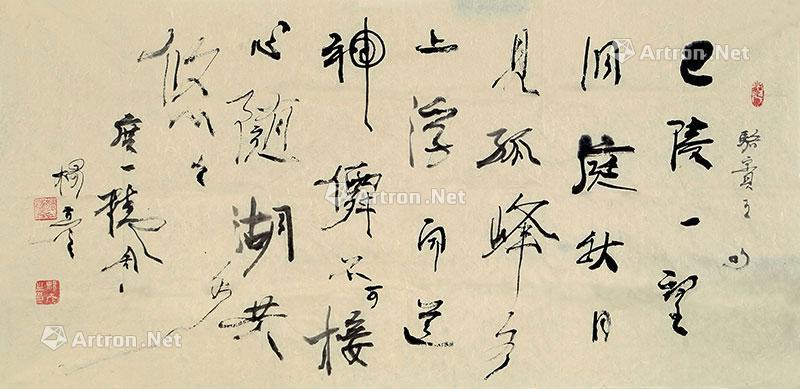 駱賓王句
巴陵一望
洞庭秋日
見孤峰水
上浮闻道
神僊不可接
心隨湖水共
悠々
楊
Artron.Net
Artron.Net
Artron.Net
Artron.Net
Artron.Net